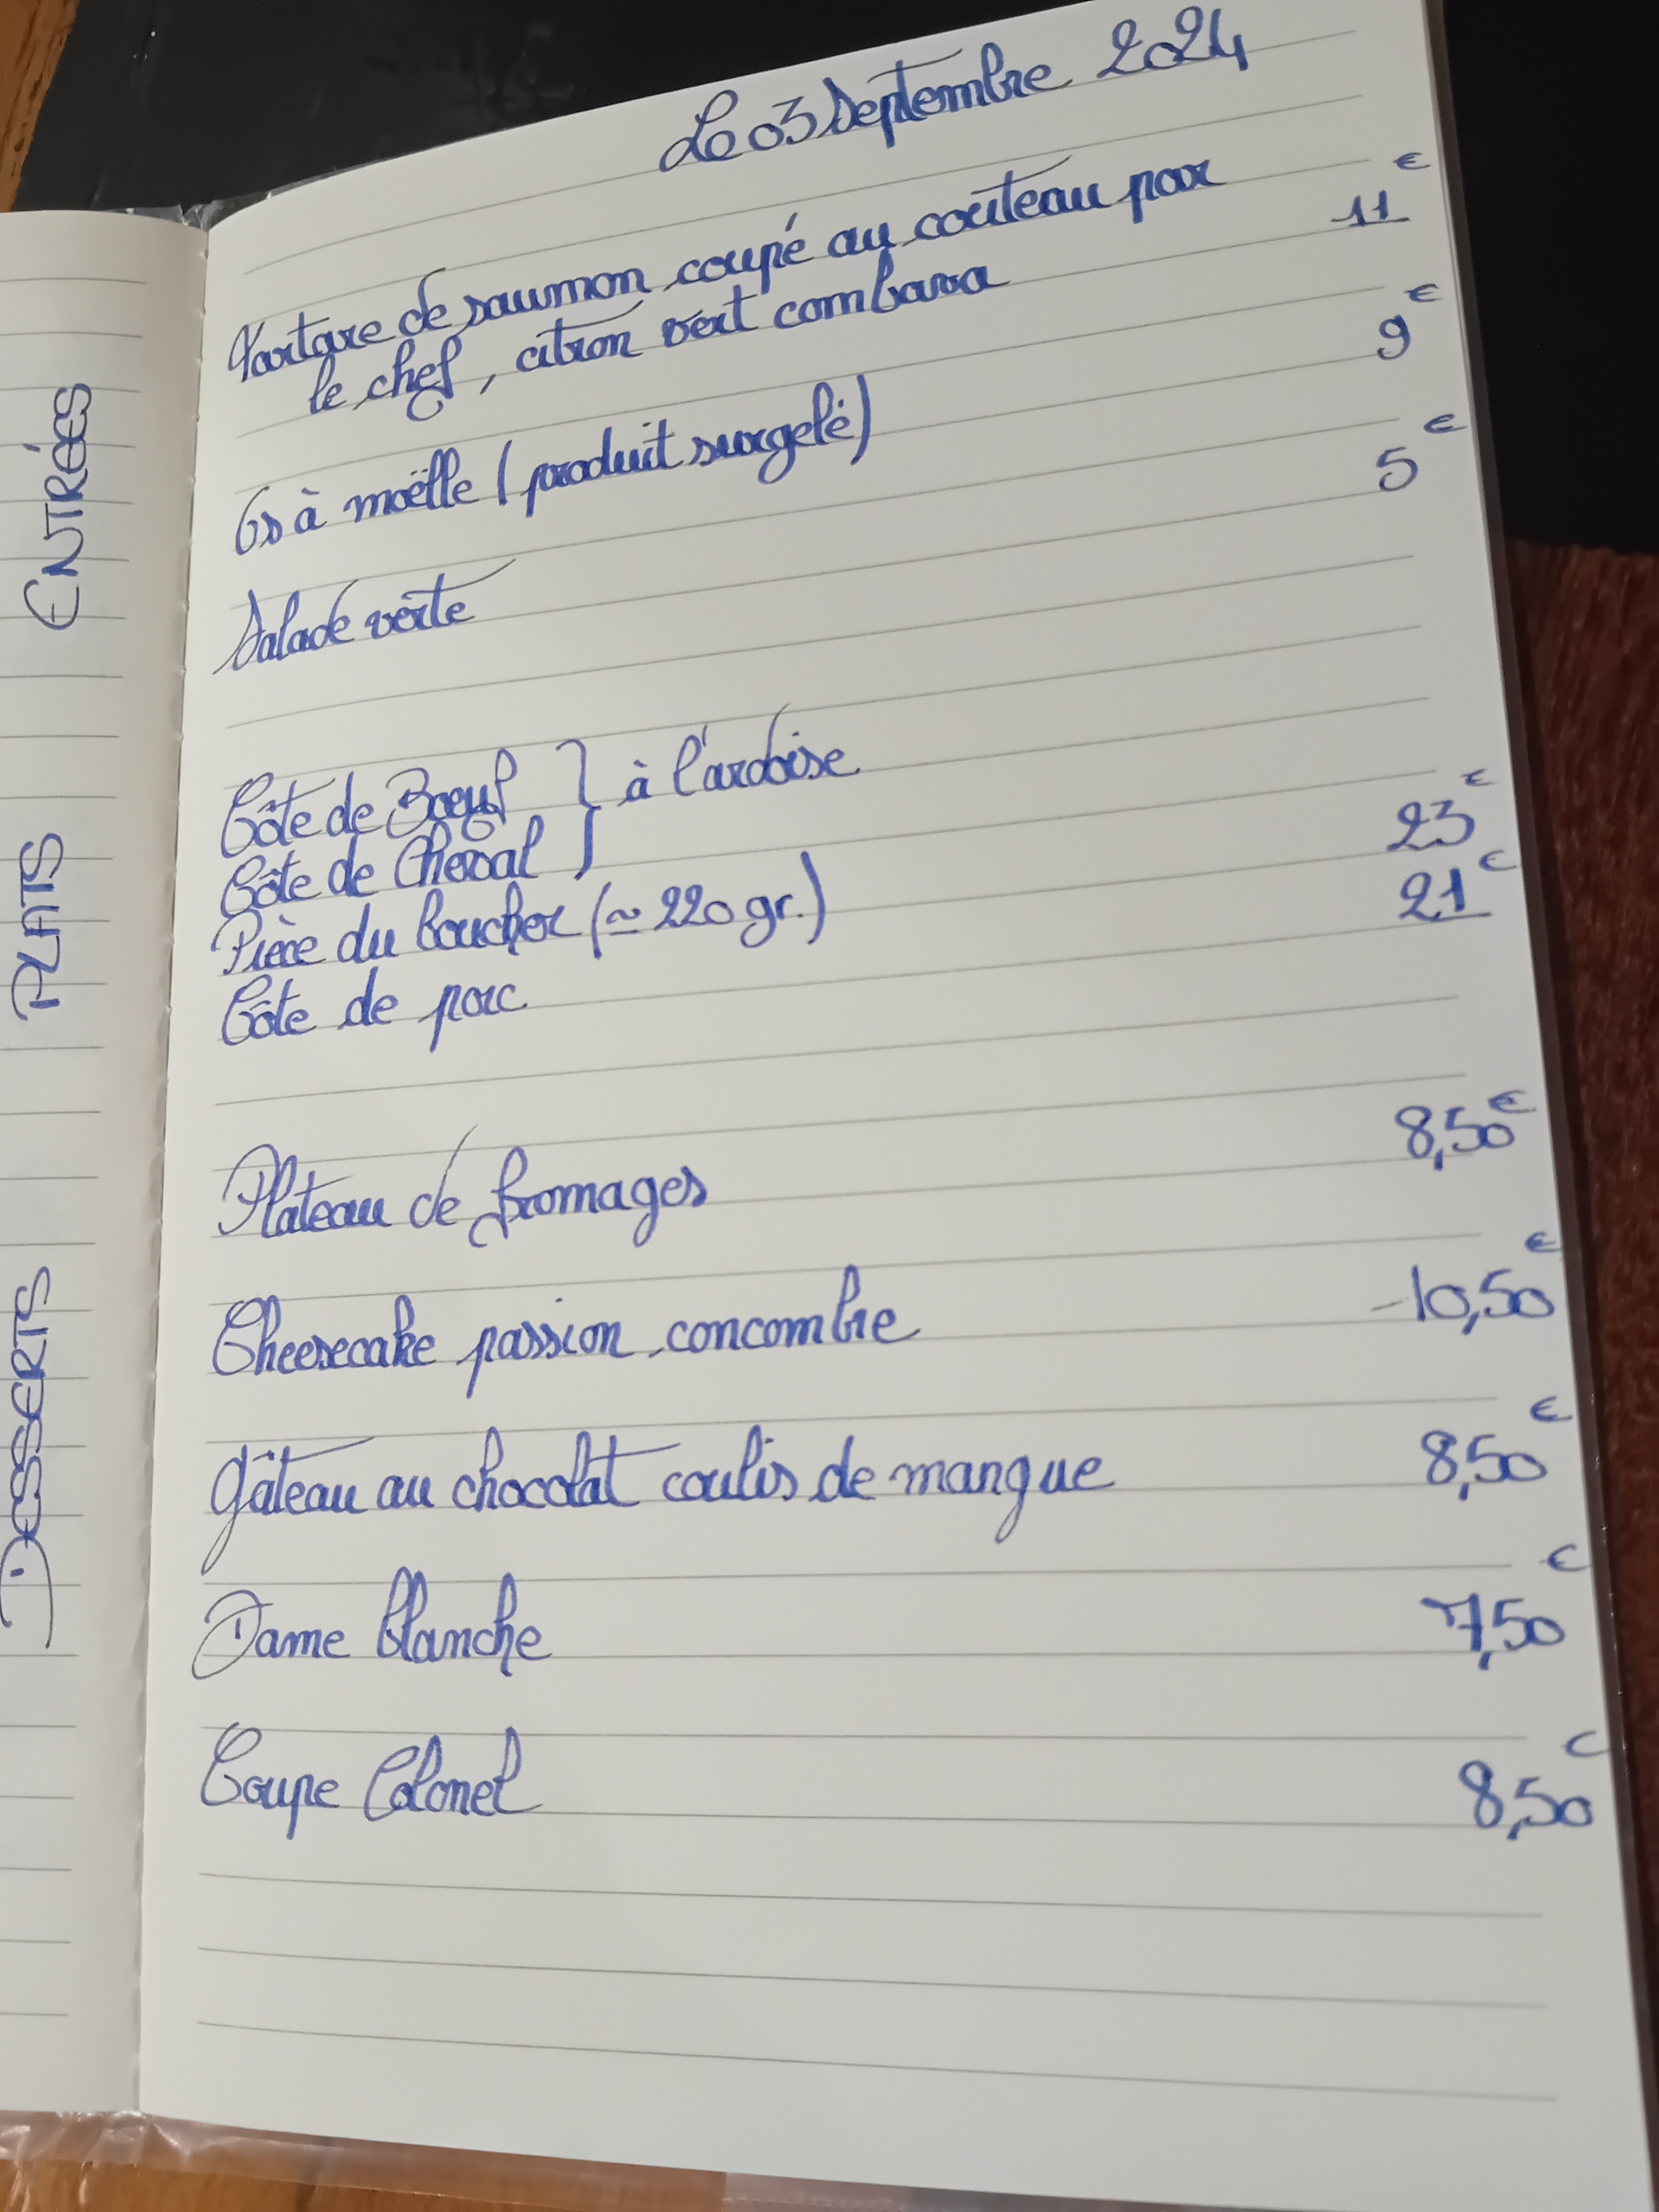 Le 03 Septembre 2024
ENTRÉES
Tartare de saumon coupé au couteau par 11€
le chef, citron vert combava
Os à moëlle (produit surgelé) 9€
Salade verte 5€
PLATS
Côte de Boeuf } à l'ardoise
Côte de Cheval
Pièce du boucher (≃ 220 gr.) 23€
Côte de porc 21€
DESSERTS
Plateau de fromages 8,50€
Cheesecake passion concombre 10,50€
Gâteau au chocolat coulis de mangue 8,50€
Dame blanche 7,50€
Coupe Colonel 8,50€